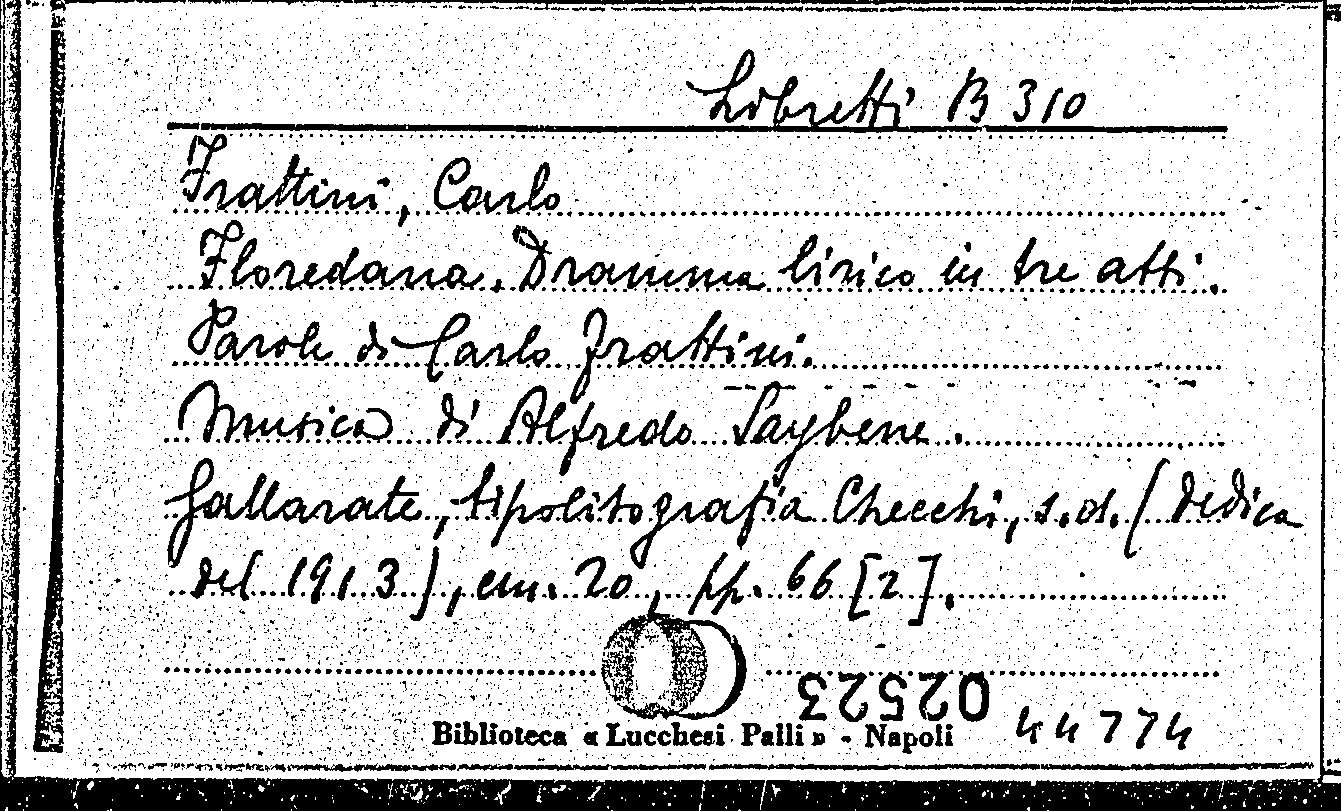 Libretti B 310
Frattini, Carlo
Floredana. Dramma lirico in tre atti.
Parole di Carlo Frattini.
Musica di Alfredo Saybene.
Gallarate, tipolitografia Checchi, s.d. (dedica
del 1913), cm. 20, pp. 66 [2].
02523
44774
Biblioteca « Lucchesi Palli » - Napoli